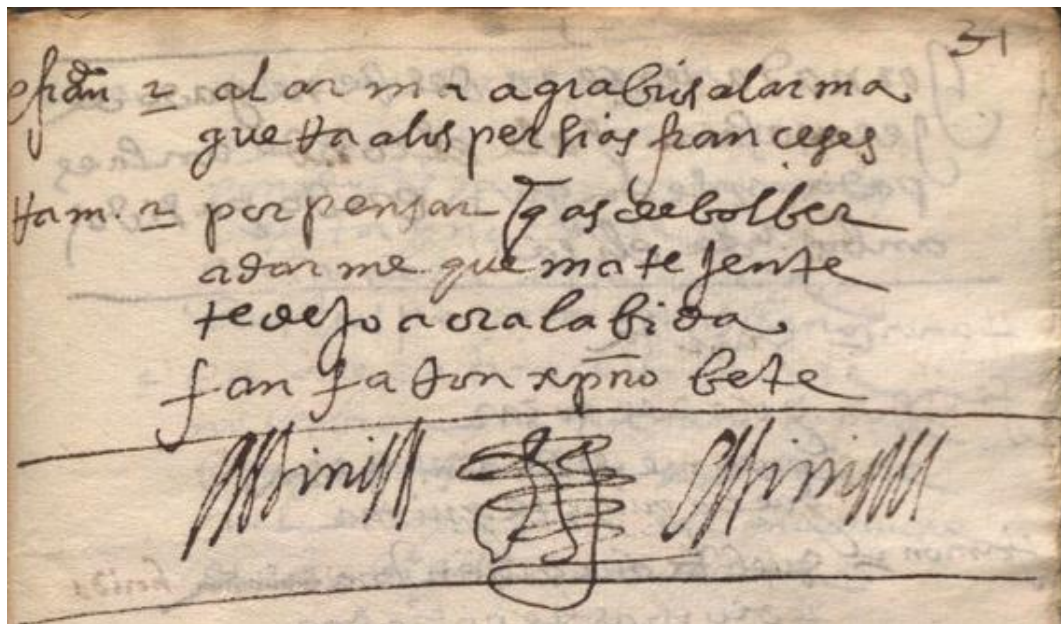 31
al arma agrabiis alarma
que ta a los persias franceses
tam. r por pensar q as de bolber
a darme que mate jente
te dejo aora la bida
fanfaron xpno bete
finis finis